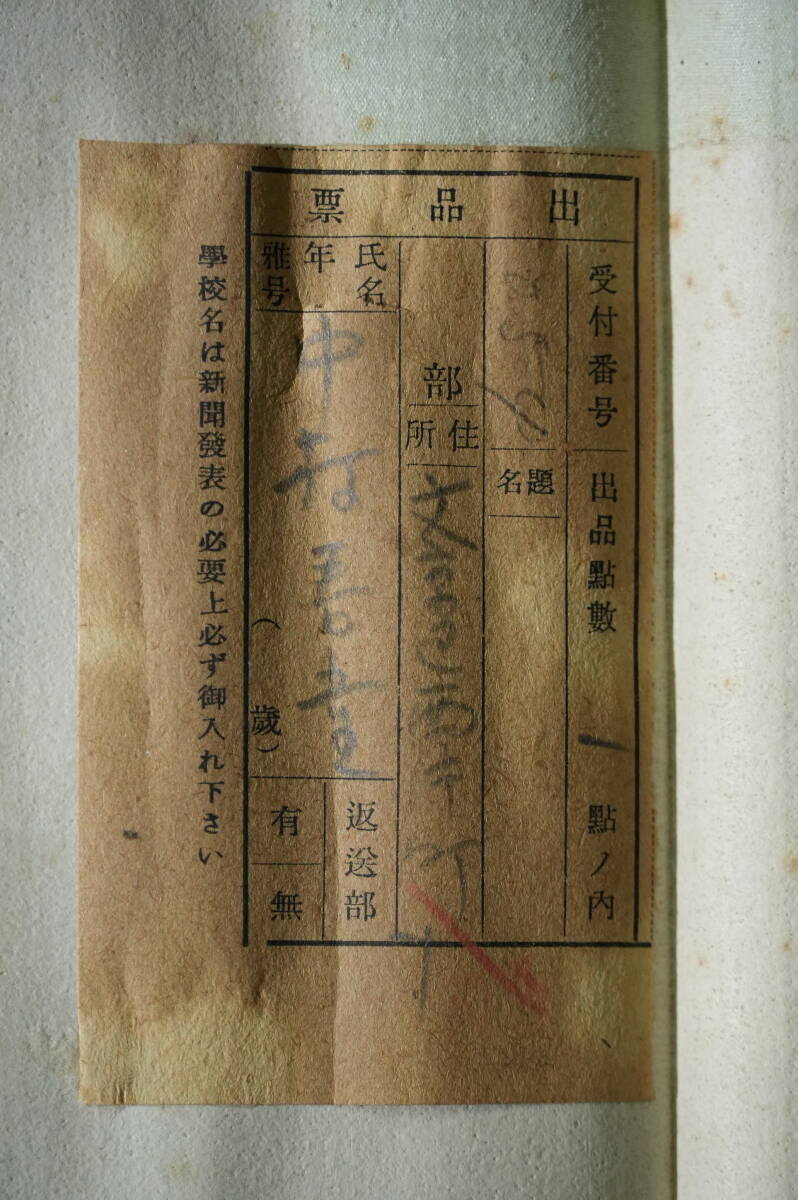 出品票
受付番号
出品點數 一 點ノ內
題名
部
住所 文京区
氏名
年
雅号
中村春堂
（ 歲）
返送部
有
無
學校名は新聞發表の必要上必ず御入れ下さい